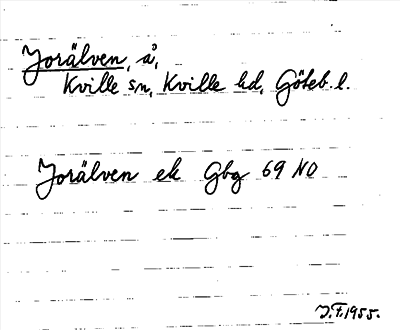 Jorälven, å,
Kville sn, Kville hd, Göteb. l.
Jorälven ek Gbg 69 NO
J.F. 1955.